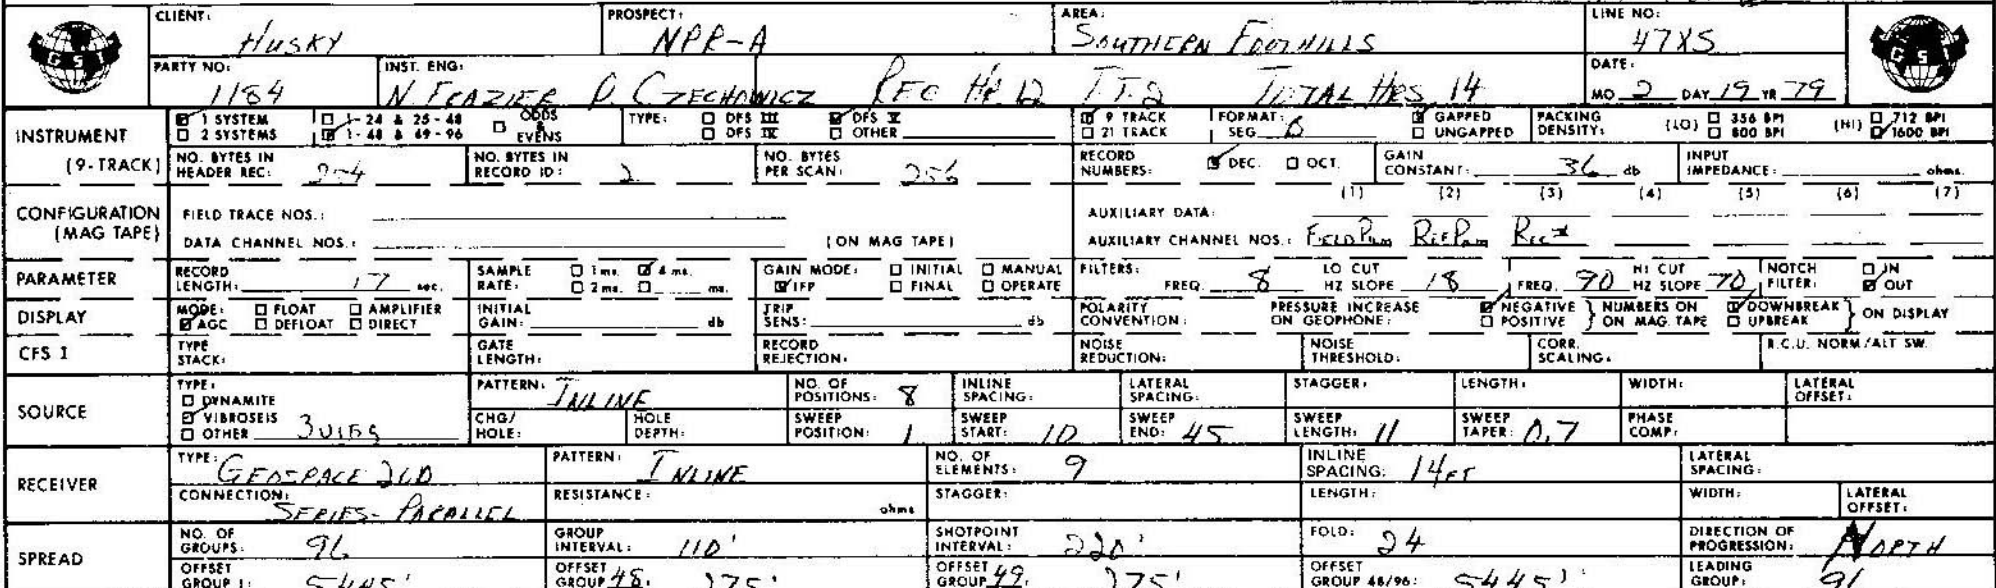 CLIENT: HUSKY PROSPECT: NPR-A AREA: SOUTHERN FOOTHILLS LINE NO: 47XS
GSI GSI
PARTY NO: 1184 INST. ENG: N. FRAZIER D. CZECHOWICZ REC HR 12 T.T. 2 TOTAL HRS 14 DATE: MO 2 DAY 19 YR 79
INSTRUMENT (9-TRACK) 1 SYSTEM 1-24 & 25-48 ODDS & EVENS TYPE: DFS III DFS V 9 TRACK FORMAT: GAPPED PACKING DENSITY: (LO) 356 BPI (HI) 712 BPI
2 SYSTEMS 1-48 & 49-96 DFS IV OTHER 21 TRACK SEG B UNGAPPED 800 BPI 1600 BPI
NO. BYTES IN HEADER REC: NO. BYTES IN RECORD ID: 2 NO. BYTES PER SCAN: 256 RECORD NUMBERS: DEC. OCT. GAIN CONSTANT: 36 db INPUT IMPEDANCE: ohms.
CONFIGURATION (MAG TAPE) (1) (2) (3) (4) (5) (6) (7)
FIELD TRACE NOS.: AUXILIARY DATA:
DATA CHANNEL NOS.: (ON MAG TAPE) AUXILIARY CHANNEL NOS.:
PARAMETER RECORD LENGTH: 17 sec. SAMPLE RATE: 1 ms. 4 ms. 2 ms. ms. GAIN MODE: INITIAL MANUAL IFP FINAL OPERATE FILTERS: FREQ. 8 LO CUT HZ SLOPE 18 FREQ. 90 HI CUT HZ SLOPE 70 NOTCH FILTER: IN OUT
DISPLAY MODE: FLOAT AMPLIFIER AGC DEFLOAT DIRECT INITIAL GAIN: db TRIP SENS: db POLARITY CONVENTION: PRESSURE INCREASE ON GEOPHONE: NEGATIVE POSITIVE } NUMBERS ON MAG. TAPE DOWNBREAK UPBREAK } ON DISPLAY
CFS I TYPE STACK: GATE LENGTH: RECORD REJECTION: NOISE REDUCTION: NOISE THRESHOLD: CORR. SCALING: R.C.U. NORM/ALT SW.
SOURCE TYPE: DYNAMITE VIBROSEIS OTHER 3 VIBS PATTERN: INLINE NO. OF POSITIONS: 8 INLINE SPACING: LATERAL SPACING: STAGGER: LENGTH: WIDTH: LATERAL OFFSET:
CHG/HOLE: HOLE DEPTH: SWEEP POSITION: 1 SWEEP START: 10 SWEEP END: 45 SWEEP LENGTH: 11 SWEEP TAPER: 0.7 PHASE COMP:
RECEIVER TYPE: GEOSPACE 20D PATTERN: INLINE NO. OF ELEMENTS: 9 INLINE SPACING: 14 FT LATERAL SPACING:
CONNECTION: SERIES-PARALLEL RESISTANCE: ohms STAGGER: LENGTH: WIDTH: LATERAL OFFSET:
SPREAD NO. OF GROUPS: 96 GROUP INTERVAL: 110' SHOTPOINT INTERVAL: 220' FOLD: 24 DIRECTION OF PROGRESSION: NORTH
OFFSET GROUP 1: 5445' OFFSET GROUP 48: 275' OFFSET GROUP 49: 275' OFFSET GROUP 48/96: 5445' LEADING GROUP: 96